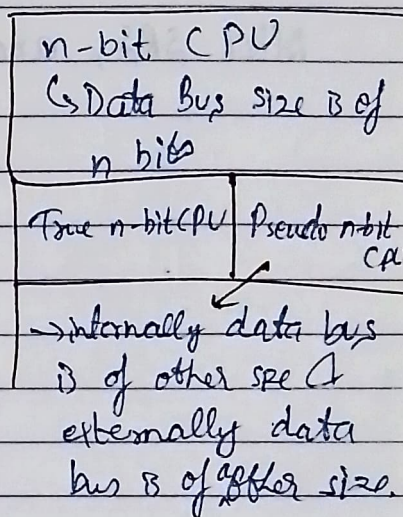 n-bit CPU
↳ Data Bus size is of
n bits
True n-bit CPU Pseudo n-bit
CPU
→ internally data bus
is of other size &
externally data
bus is of other size.